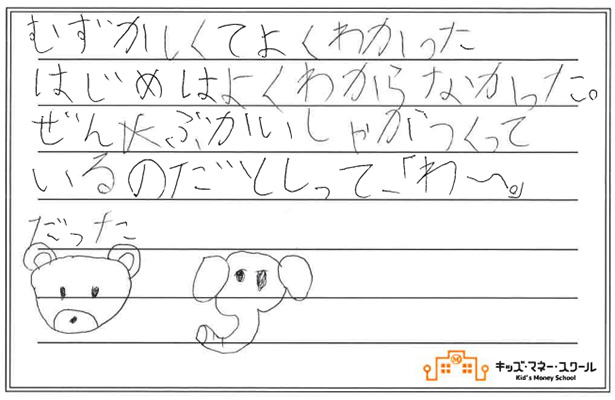 むずかしくてよくわかった
はじめはよくわからなかった。
ぜんぶかいしゃがつくって
いるのだとしって、「わ〜。」
だった
キッズ・マネー・スクール
Kid's Money School